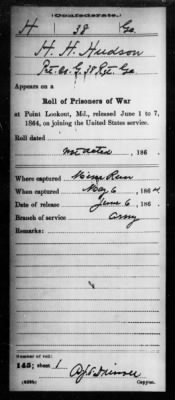 (Confederate.)
H 38 Ga.
H. H. Hudson
Pvt. Co. G. 38 Rgt. Ga.
Appears on a
Roll of Prisoners of War
at Point Lookout, Md., released June 1 to 7,
1864, on joining the United States service.
Roll dated
not dated, 186 .
Where captured Mine Run
When captured May 6, 1864
Date of release June 6, 186 .
Branch of service Army
Remarks:
Number of roll:
145; sheet 1
Copyist.